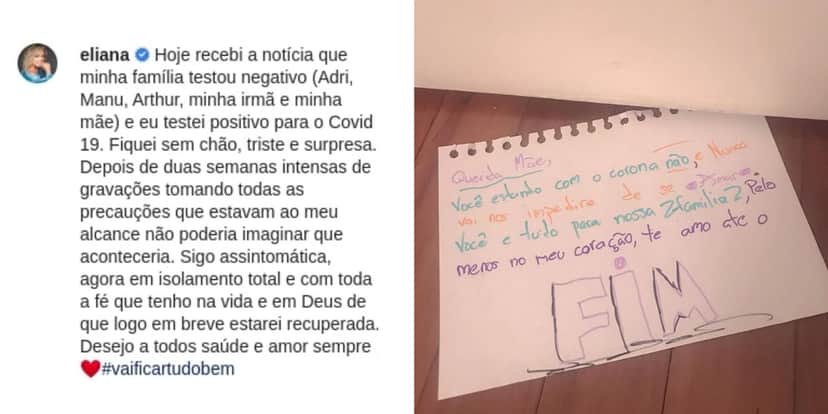 eliana Hoje recebi a notícia que
minha família testou negativo (Adri,
Manu, Arthur, minha irmã e minha
mãe) e eu testei positivo para o Covid
19. Fiquei sem chão, triste e surpresa.
Depois de duas semanas intensas de
gravações tomando todas as
precauções que estavam ao meu
alcance não poderia imaginar que
aconteceria. Sigo assintomática,
agora em isolamento total e com toda
a fé que tenho na vida e em Deus de
que logo em breve estarei recuperada.
Desejo a todos saúde e amor sempre
❤️#vaificartudobem
Querida Mãe,
Você estando com o corona não, e Nunca
vai nos impedir de se amar
Você e tudo para nossa família, Pelo
menos no meu coração, te amo ate o
FIM